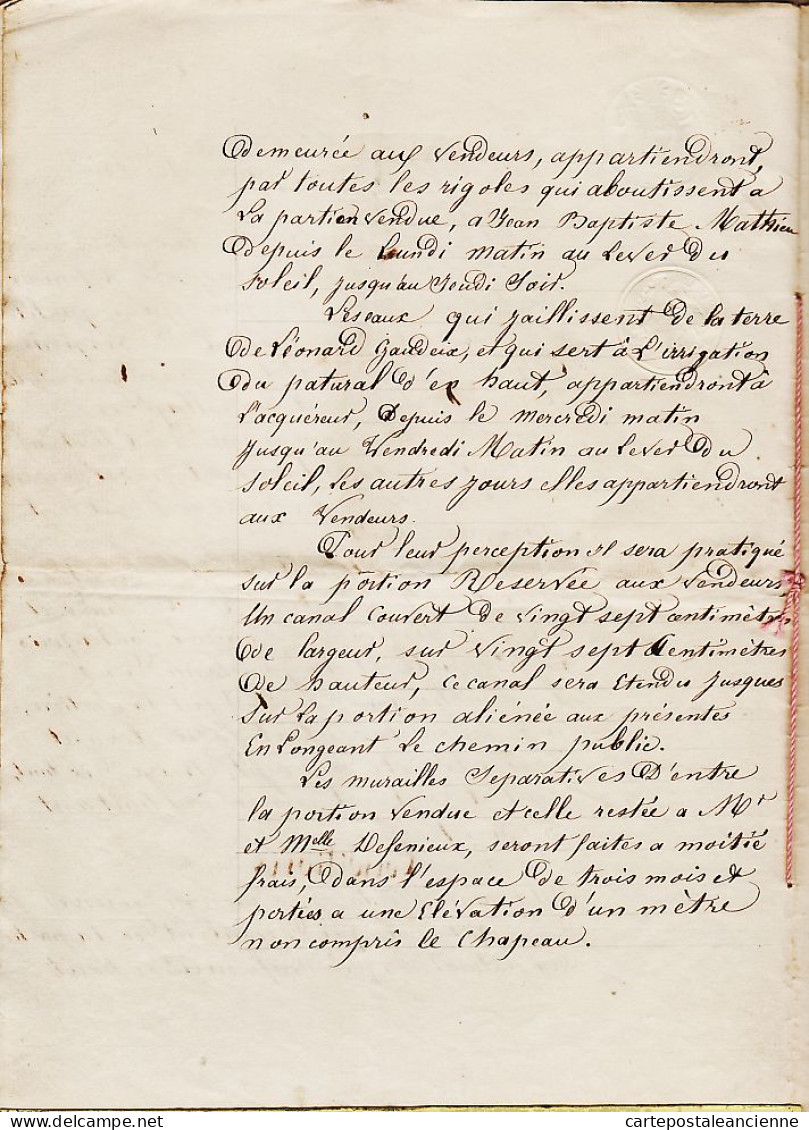 Demeurée aux Vendeurs, appartiendront,
par toutes les rigoles qui aboutissent a
La partien vendue, a Jean Baptiste Mathieu
Depuis le Lundi matin au Lever Du
Soleil, jusqu'au Jeudi Soir.
Les eaux qui jaillissent De la terre
De Léonard Gaudeix, et qui sert à L'irrigation
Du patural D'en haut, appartiendront à
L'acquéreur, Depuis le Mercredi matin
Jusqu'au Vendredi Matin au Lever Du
Soleil, Les autres jours elles appartiendront
aux Vendeurs.
Pour leur perception il sera pratiqué
sur la portion Reservée aux vendeurs
Un canal Couvert de Vingt sept centimètres
De largeur, sur Vingt sept Centimètres
De hauteur, Ce canal sera Etendu Jusques
Sur La portion aliénée aux présentes
En Longeant Le chemin public.
Les murailles Separatives D'entre
la portion Vendue et celle restée a Mr
et Melle Defenieux, seront faites a moitié
frais, Dans l'espace De trois mois et
portées a une Elévation D'un mètre
non compris le Chapeau.
cartepostaleancienne